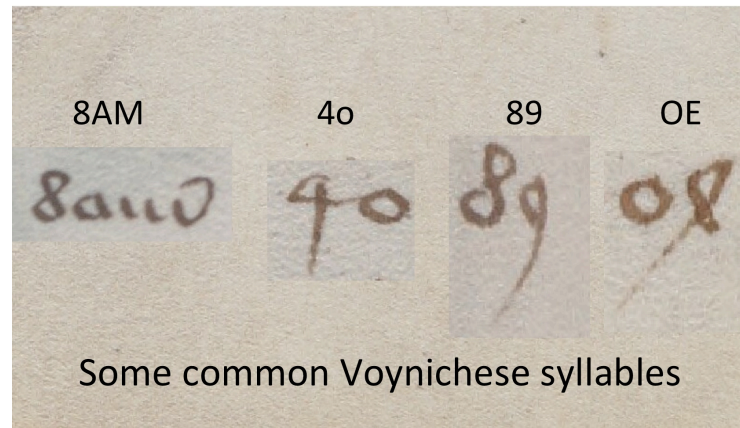 8AM 4o 89 OE
Some common Voynichese syllables